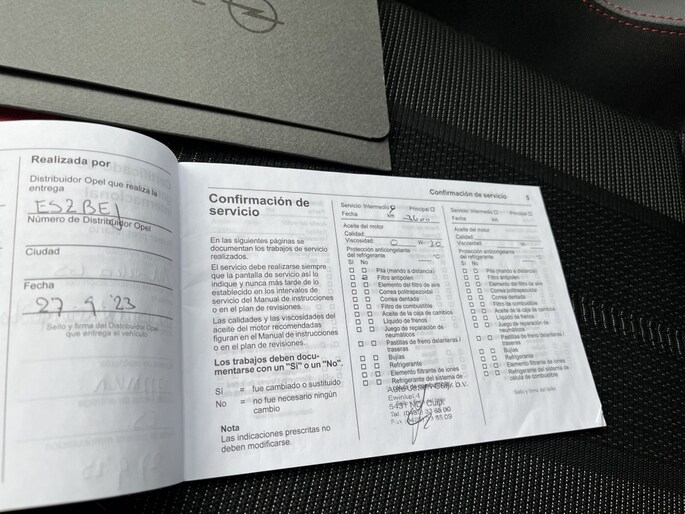 Realizada por
Distribuidor Opel que realiza la
entrega
ES2BEJ
Número de Distribuidor Opel
Ciudad
Fecha
27.9.'23
Sello y firma del Distribuidor Opel
que entrega el vehículo
Confirmación de
servicio
En las siguientes páginas se
documentan los trabajos de servicio
realizados.
El servicio debe realizarse siempre
que la pantalla de servicio así lo
indique y nunca más tarde de lo
establecido en los intervalos de
servicio del Manual de instrucciones
o en el plan de revisiones.
Las calidades y las viscosidades del
aceite del motor recomendadas
figuran en el Manual de instrucciones
o en el plan de revisiones.
Los trabajos deben docu-
mentarse con un "Sí" o un "No".
Sí = fue cambiado o sustituido
No = no fue necesario ningún
cambio
Nota
Las indicaciones prescritas no
deben modificarse.
Confirmación de servicio 5
Servicio: Intermedio Principal
Fecha km
Aceite del motor
Calidad:
Viscosidad: 0 W- 20
Protección anticongelante
del refrigerante °C
Sí No
Pila (mando a distancia)
Filtro antipolen
Elemento del filtro de aire
Correa politrapezoidal
Correa dentada
Filtro de combustible
Aceite de la caja de cambios
Líquido de frenos
Juego de reparación de
neumáticos
Pastillas de freno delanteras /
traseras
Bujías
Refrigerante
Elemento filtrante de iones
Refrigerante del sistema de
célula de combustible
Ewinkel 4
5431 NC Cuijk
Servicio: Intermedio Principal
Fecha km
Aceite del motor
Calidad:
Viscosidad: W-
Protección anticongelante
del refrigerante °C
Sí No
Pila (mando a distancia)
Filtro antipolen
Elemento del filtro de aire
Correa politrapezoidal
Correa dentada
Filtro de combustible
Aceite de la caja de cambios
Líquido de frenos
Juego de reparación de
neumáticos
Pastillas de freno delanteras /
traseras
Bujías
Refrigerante
Elemento filtrante de iones
Refrigerante del sistema de
célula de combustible
Sello y firma del Taller